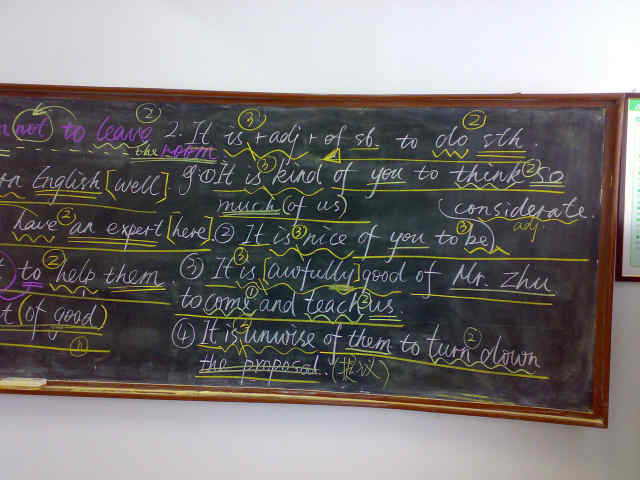 not to leave
the room
English [well]
have an expert [here].
to help them
(of good)
2. It is + adj + of sb. to do sth.
① It is kind of you to think so
much (of us)
② It is nice of you to be considerate.
adj.
③ It is [awfully] good of Mr. Zhu
to come and teach us.
④ It is unwise of them to turn down
the proposal. (提议)